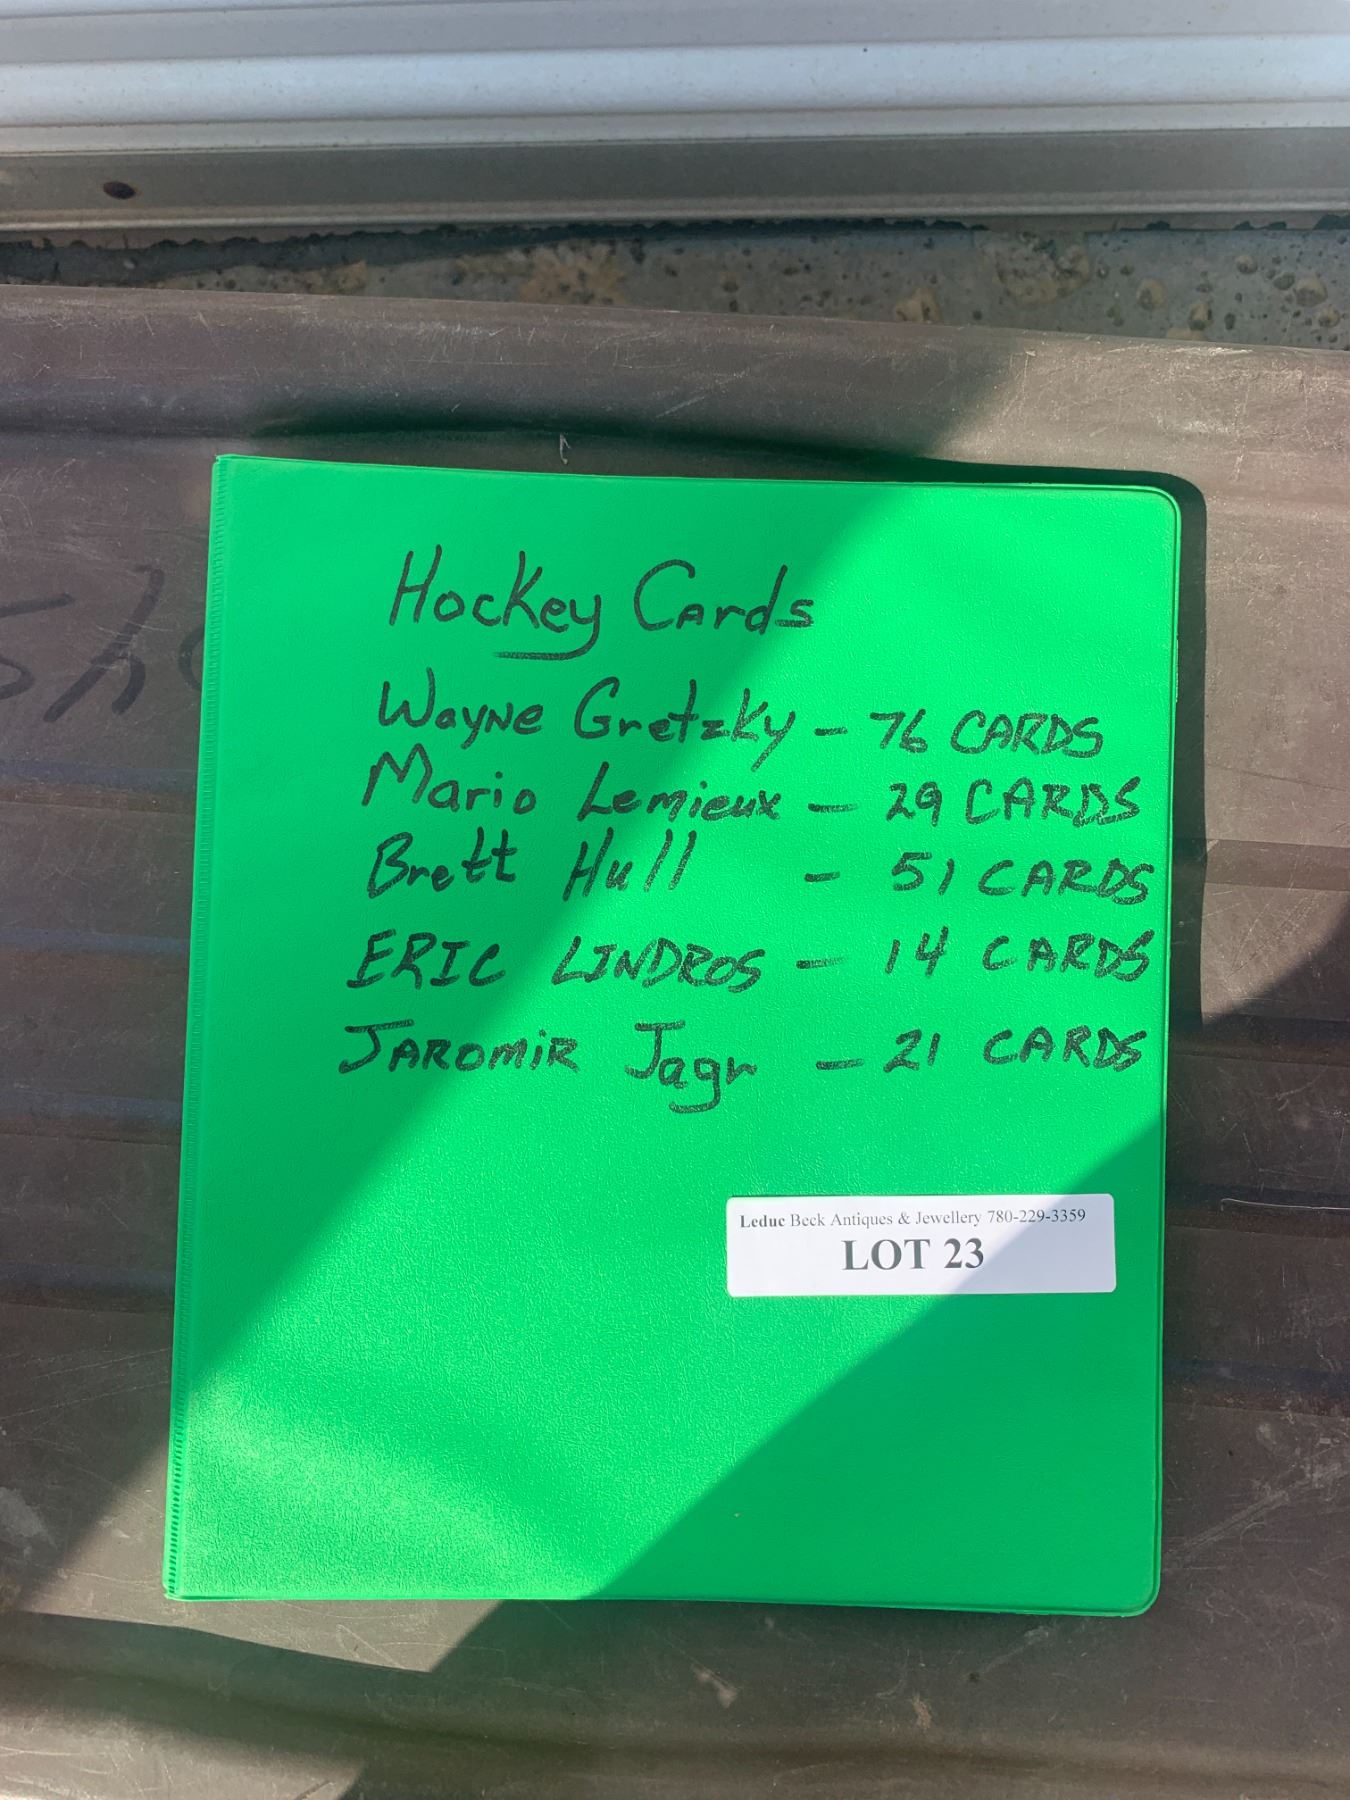 Hockey Cards
Wayne Gretzky - 76 CARDS
Mario Lemieux - 29 CARDS
Brett Hull - 51 CARDS
ERIC LINDROS - 14 CARDS
JAROMIR Jagr - 21 CARDS
Leduc Beck Antiques & Jewellery 780-229-3359
LOT 23